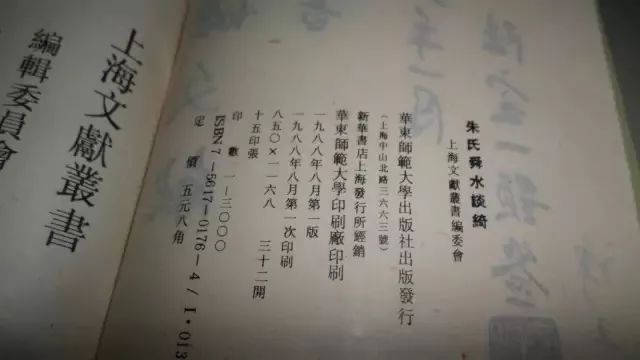 朱氏舜水談綺
上海文獻叢書編委會
華東師範大學出版社出版發行
(上海中山北路三六六三號)
新華書店上海發行所經銷
華東師範大學印刷廠印刷
一九八八年八月第一版
一九八八年八月第一次印刷
八五〇×一一六八 三十二開
十五印張
印數 一—三〇〇〇
ISBN7-5617-0176-4/I·013
定價 五元八角
上海文獻叢書
編輯委員會